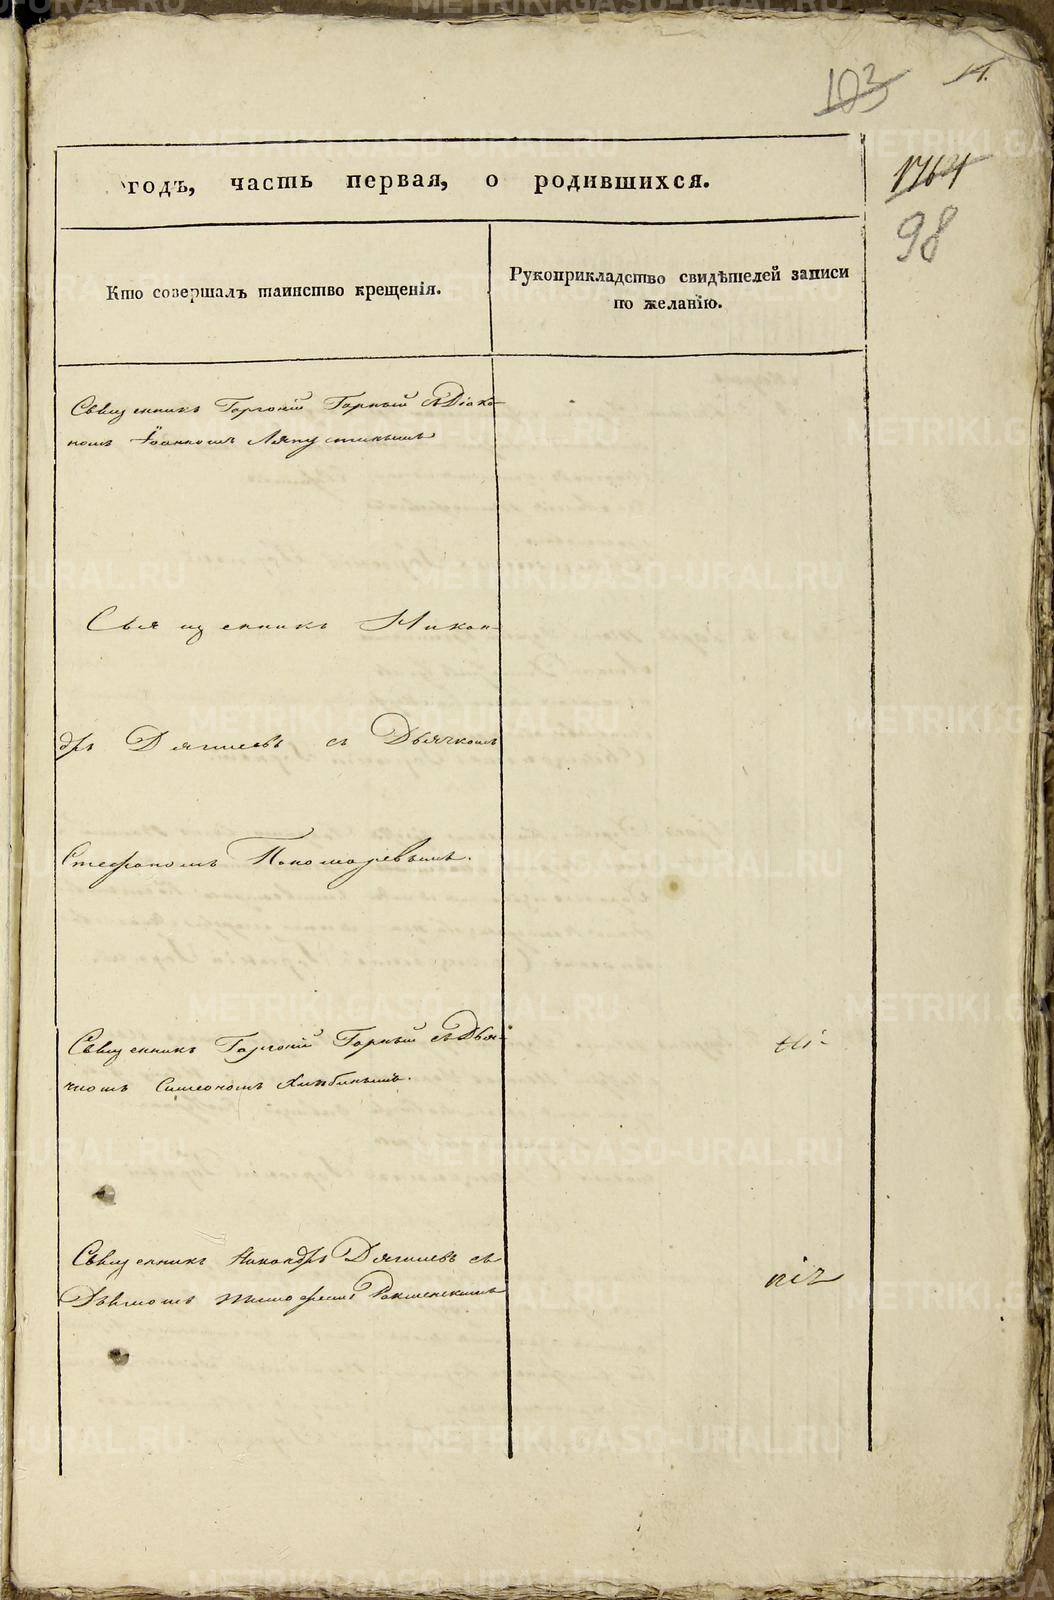 103
14.
1764
98
годъ, часть первая, о родившихся.
Кто совершалъ таинство крещенія.
Рукоприкладство свидѣтелей записи
по желанію.
Священникъ Горгоній Горный съ Діако-
номъ Іоанномъ Ляпустинымъ
Священникъ Никан-
дръ Дягилевъ съ Дьячкомъ
Стефаномъ Пономаревымъ.
Священникъ Горгоній Горный съ Дья-
чкомъ Симеономъ Хлѣбинымъ.
Священникъ Никандръ Дягилевъ съ
METRIKI.GASO-URAL.RU